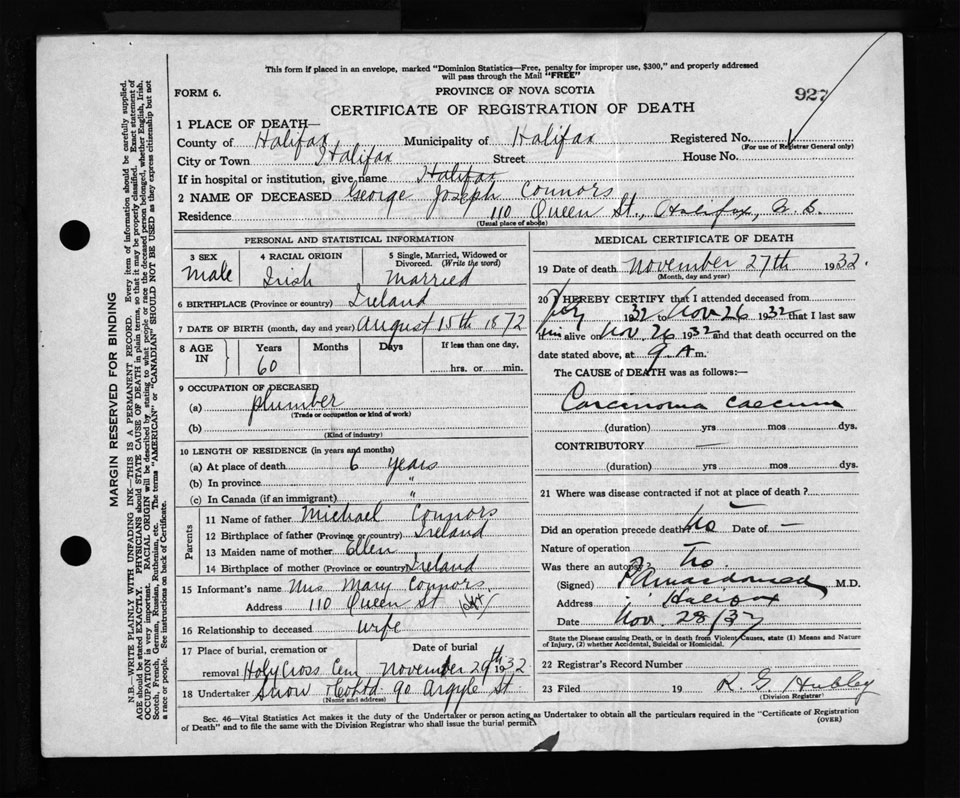 This form if placed in an envelope, marked "Dominion Statistics—Free, penalty for improper use, $300," and properly addressed
will pass through the Mail "FREE"
FORM 6.
PROVINCE OF NOVA SCOTIA
927
CERTIFICATE OF REGISTRATION OF DEATH
1 PLACE OF DEATH—
County of Halifax Municipality of Halifax Registered No.
(For use of Registrar General only)
City or Town Halifax Street House No.
If in hospital or institution, give name Halifax
2 NAME OF DECEASED George Joseph Connors
Residence 110 Queen St., Halifax, N. S.
(Usual place of abode)
PERSONAL AND STATISTICAL INFORMATION
3 SEX 4 RACIAL ORIGIN 5 Single, Married, Widowed or
Divorced. (Write the word)
Male Irish Married
6 BIRTHPLACE (Province or country) Ireland
7 DATE OF BIRTH (month, day and year) August 15th 1872
8 AGE IN Years Months Days If less than one day,
60 hrs. or min.
9 OCCUPATION OF DECEASED
(a) plumber
(Trade or occupation or kind of work)
(b)
(Kind of industry)
10 LENGTH OF RESIDENCE (in years and months)
(a) At place of death 6 years
(b) In province "
(c) In Canada (if an immigrant) "
Parents
11 Name of father Michael Connors
12 Birthplace of father (Province or country) Ireland
13 Maiden name of mother Ellen
14 Birthplace of mother (Province or country) Ireland
15 Informant's name Mrs Mary Connors
Address 110 Queen St
16 Relationship to deceased wife
17 Place of burial, cremation or Date of burial
removal Holy Cross Cem November 29th 1932
18 Undertaker Snow & Co Ltd. 90 Argyle St.
(Name and address)
MEDICAL CERTIFICATE OF DEATH
19 Date of death November 27th 1932.
(Month, day and year)
20 I HEREBY CERTIFY that I attended deceased from
1932 to Nov 26 1932 that I last saw
him alive on Nov. 26 1932 and that death occurred on the
date stated above, at 9 A m.
The CAUSE of DEATH was as follows:—
Carcinoma caecum
(duration) yrs mos dys.
CONTRIBUTORY —
(duration) yrs mos dys.
21 Where was disease contracted if not at place of death? —
Did an operation precede death? No Date of —
Nature of operation —
Was there an autopsy? No.
(Signed) M.D.
Address Halifax
Date Nov. 28/32
State the Disease causing Death, or in death from Violent Causes, state (1) Means and Nature
of Injury, (2) whether Accidental, Suicidal or Homicidal.
22 Registrar's Record Number
23 Filed 19 R. G. Hubley
(Division Registrar)
Sec. 46—Vital Statistics Act makes it the duty of the Undertaker or person acting as Undertaker to obtain all the particulars required in the "Certificate of Registration
of Death" and to file the same with the Division Registrar who shall issue the burial permit.
(OVER)
MARGIN RESERVED FOR BINDING
N.B.—WRITE PLAINLY WITH UNFADING INK—THIS IS A PERMANENT RECORD. Every item of information should be carefully supplied.
AGE should be stated EXACTLY. PHYSICIANS should STATE CAUSE OF DEATH in plain terms, so that it may be properly classified. Exact statement of
OCCUPATION is very important. RACIAL ORIGIN will be described by stating to what people or race the deceased person belonged, whether English, Irish,
Scotch, French, German, Russian, Ruthenian, etc. The terms "AMERICAN" or "CANADIAN" SHOULD NOT BE USED as they express citizenship but not
a race or people. See instructions on back of Certificate.